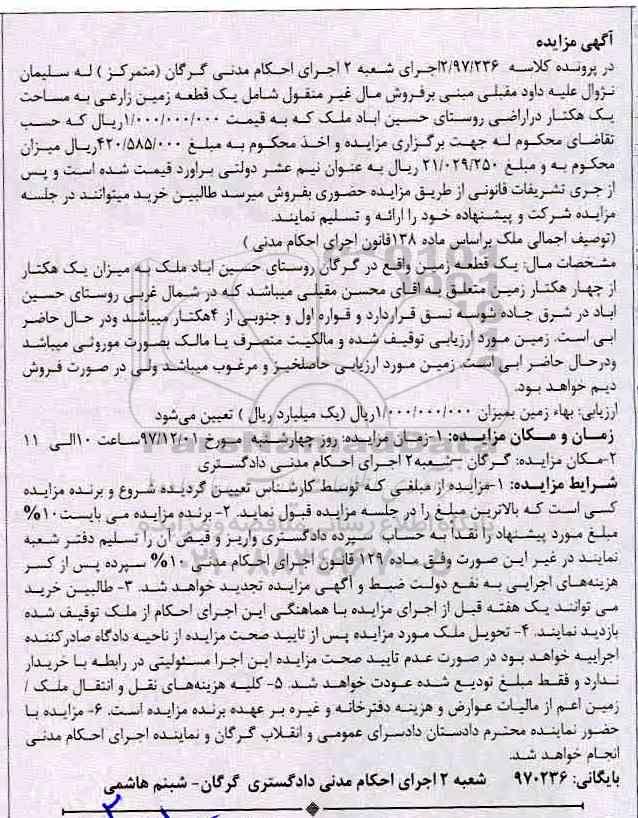 آگهی مزایده
در پرونده کلاسه ۲/۹۷/۲۳۶اجرای شعبه ۲ اجرای احکام مدنی گرگان (متمرکز ) له سلیمان
نژوال علیه داود مقبلی مبنی برفروش مال غیر منقول شامل یک قطعه زمین زارعی به مساحت
یک هکتار دراراضی روستای حسین اباد ملک که به قیمت ۱/۰۰۰/۰۰۰/۰۰۰ریال که حسب
تقاضای محکوم له جهت برگزاری مزایده و اخذ محکوم به مبلغ ۴۲۰/۵۸۵/۰۰۰ریال میزان
محکوم به و مبلغ ۲۱/۰۲۹/۲۵۰ ریال به عنوان نیم عشر دولتی براورد قیمت شده است و پس
از جری تشریفات قانونی از طریق مزایده حضوری بفروش میرسد طالبین خرید میتوانند در جلسه
مزایده شرکت و پیشنهاده خود را ارائه و تسلیم نمایند.
(توصیف اجمالی ملک براساس ماده ۱۳۸قانون اجرای احکام مدنی )
مشخصات مال: یک قطعه زمین واقع در گرگان روستای حسین اباد ملک به میزان یک هکتار
از چهار هکتار زمین متعلق به اقای محسن مقبلی میباشد که در شمال غربی روستای حسین
اباد در شرق جاده شوسه نسق قراردارد و قواره اول و جنوبی از ۴هکتار میباشد ودر حال حاضر
ابی است. زمین مورد ارزیابی توقیف شده و مالکیت متصرف یا مالک بصورت موروثی میباشد
ودرحال حاضر ابی است. زمین مورد ارزیابی حاصلخیز و مرغوب میباشد ولی در صورت فروش
دیم خواهد بود.
ارزیابی: بهاء زمین بمیزان ۱/۰۰۰/۰۰۰/۰۰۰ریال (یک میلیارد ریال ) تعیین می‌شود
زمان و مکان مزایده: ۱-زمان مزایده: روز چهارشنبه مورخ ۹۷/۱۲/۰۱ساعت ۱۰الی ۱۱
۲-مکان مزایده: گرگان –شعبه۲ اجرای احکام مدنی دادگستری
شرایط مزایده: ۱-مزایده از مبلغی که توسط کارشناس تعیین گردیده شروع و برنده مزایده
کسی است که بالاترین مبلغ را در جلسه مزایده قبول نماید. ۲- برنده مزایده می بایست ۱۰%
مبلغ مورد پیشنهاد را نقداً به حساب سپرده دادگستری واریز و قبض آن را تسلیم دفتر شعبه
نمایند در غیر این صورت وفق ماده ۱۲۹ قانون اجرای احکام مدنی ۱۰% سپرده پس از کسر
هزینه‌های اجرایی به نفع دولت ضبط و آگهی مزایده تجدید خواهد شد. ۳- طالبین خرید
می توانند یک هفته قبل از اجرای مزایده با هماهنگی این اجرای احکام از ملک توقیف شده
بازدید نمایند. ۴- تحویل ملک مورد مزایده پس از تایید صحت مزایده از ناحیه دادگاه صادرکننده
اجراییه خواهد بود در صورت عدم تایید صحت مزایده این اجرا مسئولیتی در رابطه با خریدار
ندارد و فقط مبلغ تودیع شده عودت خواهد شد. ۵- کلیه هزینه‌های نقل و انتقال ملک /
زمین اعم از مالیات عوارض و هزینه دفترخانه و غیره بر عهده برنده مزایده است. ۶- مزایده با
حضور نماینده محترم دادستان دادسرای عمومی و انقلاب گرگان و نماینده اجرای احکام مدنی
انجام خواهد شد.
بایگانی: ۹۷۰۲۳۶ شعبه ۲ اجرای احکام مدنی دادگستری گرگان- شبنم هاشمی